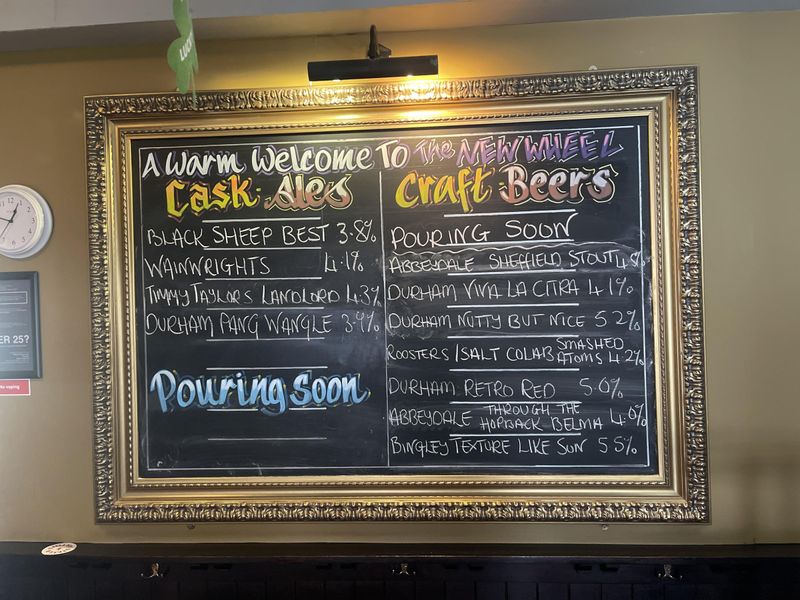 LUCKY
A Warm Welcome To The NEW WHEEL
Cask Ales
BLACK SHEEP BEST 3.8%
WAINWRIGHTS 4.1%
TIMMY TAYLORS LANDLORD 4.3%
DURHAM PANG WANGLE 3.9%
Pouring Soon
Craft Beers
POURING SOON
ABBEYDALE SHEFFIELD STOUT 4.5%
DURHAM VIVA LA CITRA 4.1%
DURHAM NUTTY BUT NICE 5.2%
ROOSTERS/SALT COLAB SMASHED ATOMS 4.2%
DURHAM RETRO RED 5.0%
ABBEYDALE THROUGH THE HOPBACK BELMA 4.0%
BINGLEY TEXTURE LIKE SUN 5.5%
ER 25?
No vaping